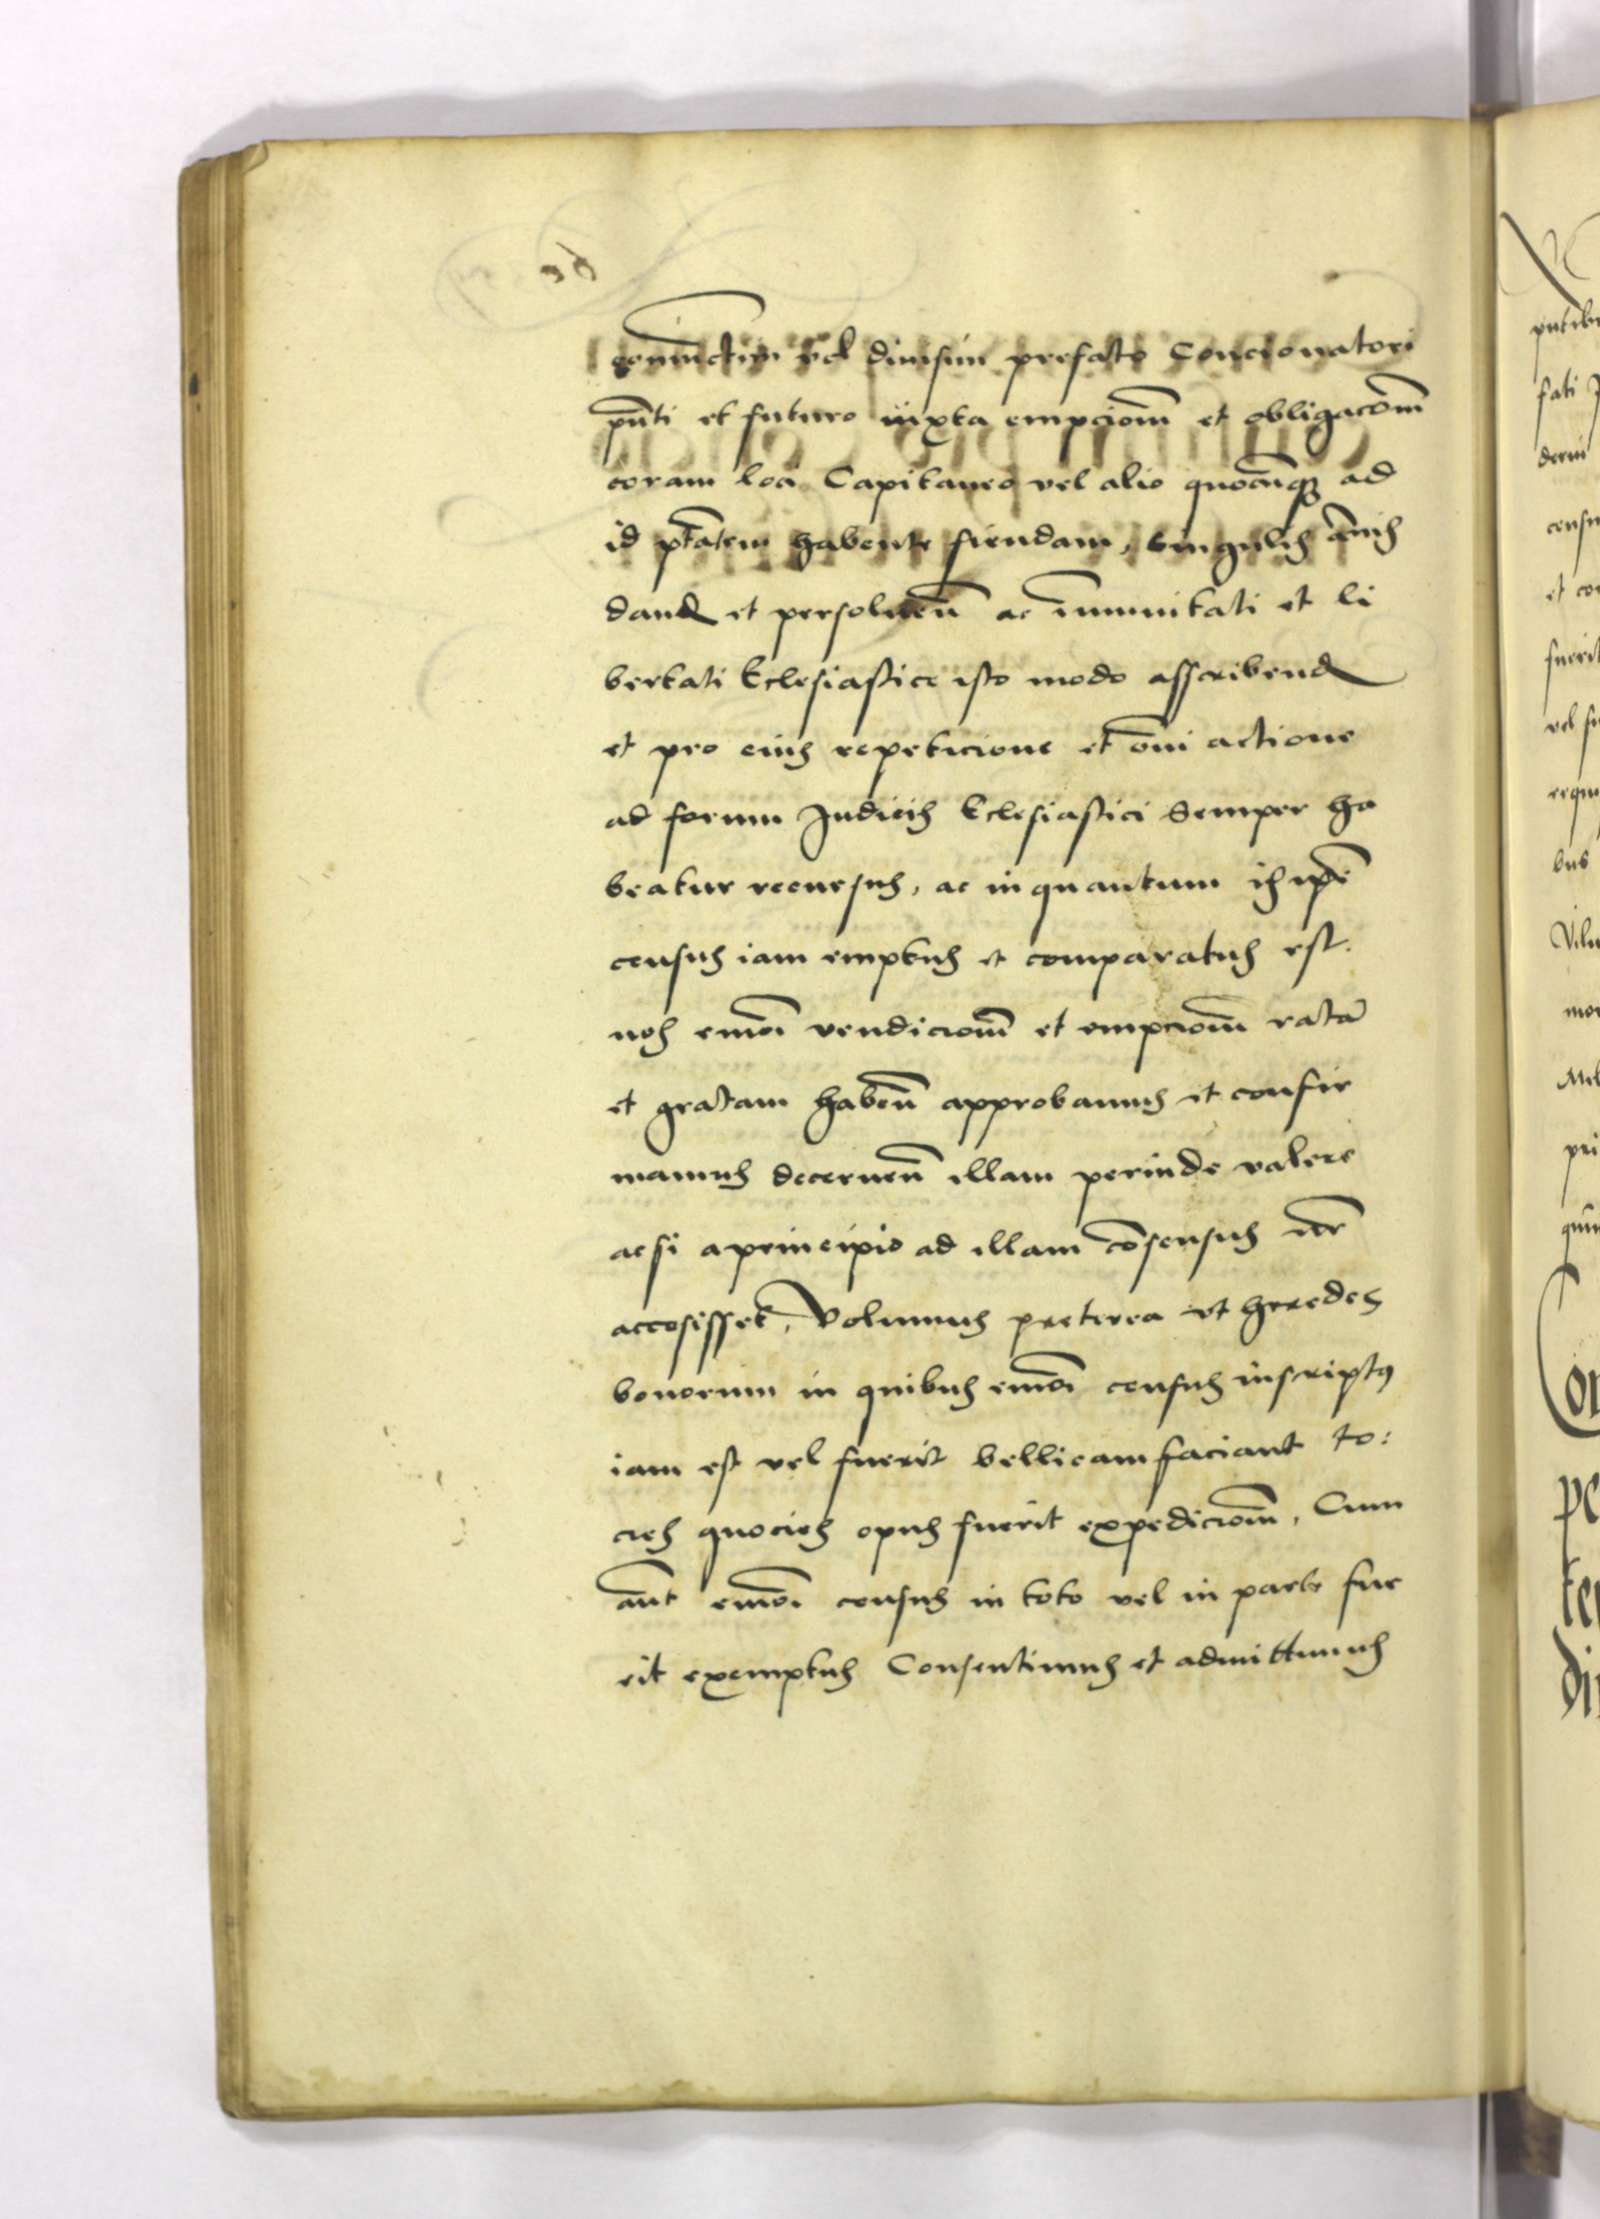 coniunctim vel diuisim prefato Concionatori
pn̄ti et futuro iuxta empciom̄ et obligacōm̄
coram loci Capitaneo vel alio quocūqꝫ ad
id ptātem habente fiendam, singulis annis
dand et persoluen̄ ac im̄unitati et li
bertati Eclesiastice isto modo asscribend
et pro eius repeticione et ōni actione
ad forum Judicis Eclesiastici Semper ha
beatur recursus, ac in quantum is ip̄e
census iam emptus et comparatus est.
nos em̄oi vendiciom̄ et empciom̄ ratā
et gratam haben̄ approbamus et confir
mamus decernen̄ illam perinde valere
acsi a principio ad illam cōsensus nr̄
accesisset, Volumus preterea vt heredes
bonorum in quibus em̄oi census inscriptꝰ
iam est vel fuerit bellicam faciant to:
cies quocies opus fuerit expediciom̄, Cum
aūt em̄oi census in toto vel in parte fue
rit exemptus Consentimus et admittimus